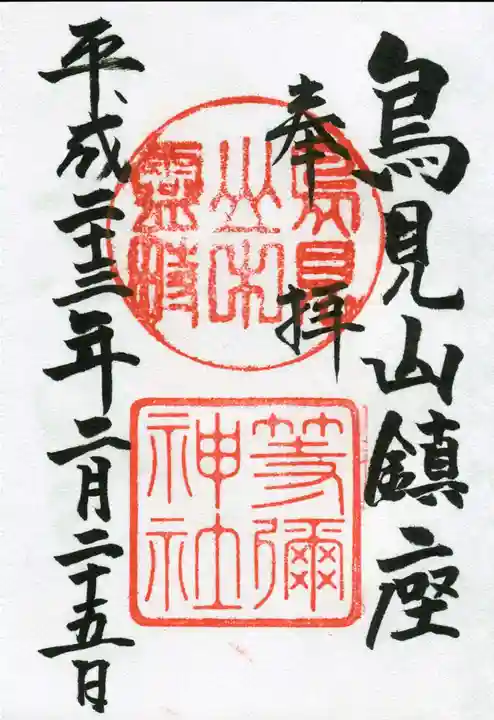 鳥見山鎮座
奉拝
鳥見
山之中
靈畤
等彌
神社
平成二十三年二月二十五日